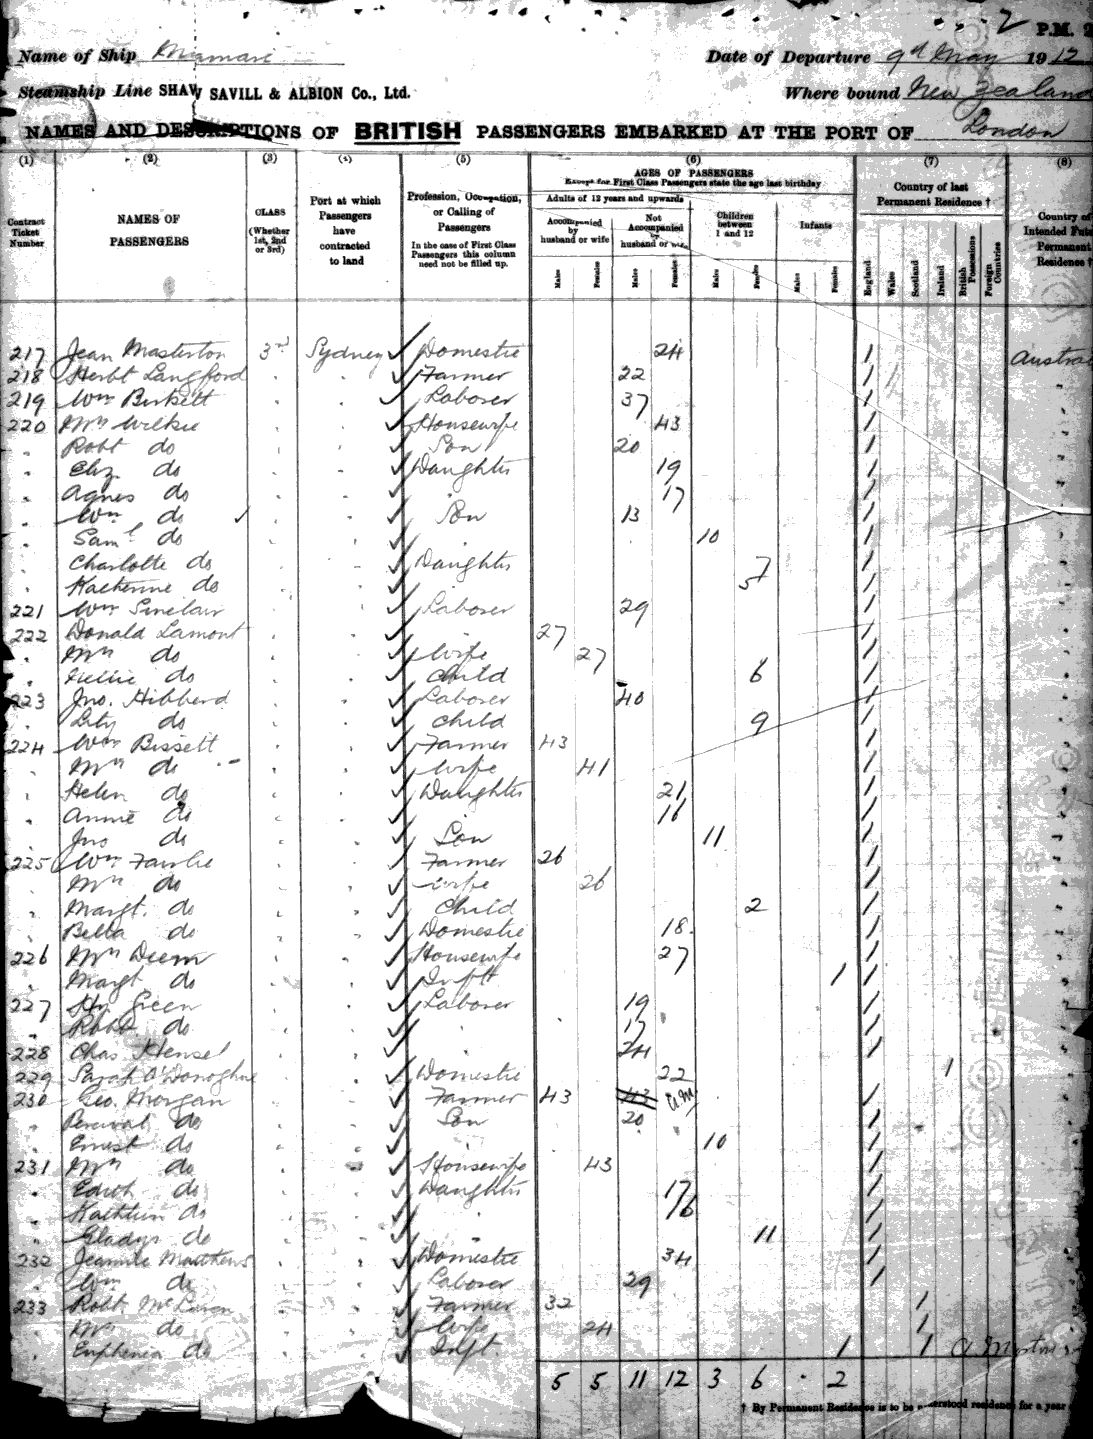 2 P.M. 2
Name of Ship Miamari Date of Departure 9th May 1912
Steamship Line SHAW SAVILL & ALBION Co., Ltd. Where bound New Zealand
NAMES AND DESCRIPTIONS OF BRITISH PASSENGERS EMBARKED AT THE PORT OF London
(1) (2) (3) (4) (5) (6) (7) (8)
Contract Ticket Number
NAMES OF PASSENGERS
CLASS (Whether 1st, 2nd or 3rd)
Port at which Passengers have contracted to land
Profession, Occupation, or Calling of Passengers
In the case of First Class Passengers this column need not be filled up.
AGES OF PASSENGERS
Except for First Class Passengers state the age last birthday
Adults of 12 years and upwards
Accompanied by husband or wife
Not Accompanied by husband or wife
Children between 1 and 12
Infants
Males Females Males Females Males Females Males Females
Country of last Permanent Residence †
England Wales Scotland Ireland British Possessions Foreign Countries
Country of Intended Permanent Residence †
217 Jean Masterton 3rd Sydney Domestic 24 1 Austra
218 Herbt Langford " " Farmer 22 1 "
219 Wm Birkett " " Laborer 37 1 "
220 Mrs Wilkie " " Housewife 43 1 "
" Robt do " " Son 20 1 "
" Eliz. do " " Daughter 19 1 "
" Agnes do " " " 17 1 "
" Wm do " " Son 13 1 "
" Saml do " " " 10 1 "
" Charlotte do " " Daughter 7 1 "
" Katherine do " " " 5 1 "
221 Wm Sinclair " " Laborer 29 1 "
222 Donald Lamont " " " 27 1 "
" Mrs do " " Wife 27 1 "
" Nellie do " " Child 6 1 "
223 Jno. Hibberd " " Laborer 40 1 "
" Lity do " " Child 9 1 "
224 Wm Bissett " " Farmer 43 1 "
" Mrs do " " Wife 41 1 "
" Helen do " " Daughter 21 1 "
" Annie do " " " 16 1 "
" Jno do " " Son 11 1 "
225 Wm Fairlie " " Farmer 26 1 "
" Mrs do " " Wife 26 1 "
" Margt. do " " Child 2 1 "
" Bella do " " Domestic 18 1 "
226 Mrs Deem " " Housewife 27 1 "
" Margt do " " Inft 1 1 "
227 Hy Green " " Laborer 19 1 "
" Robt. do " " " 17 1 "
228 Chas Hensel " " " 24 1 "
229 Sarah O'Donoghue " " Domestic 22 1 "
230 Geo. Morgan " " Farmer 43 43 a.m 1 "
" Percival do " " Son 20 1 "
" Ernest do " " " 10 1 "
231 Mrs do " " Housewife 43 1 "
" Edith do " " Daughter 17 1 "
" Kathleen do " " " 16 1 "
" Gladys do " " " 11 1 "
232 Jeannie Matthews " " Domestic 34 1 "
" Wm do " " Laborer 29 1 "
233 Robt. McLaren " " Farmer 32 1 "
" Mrs do " " Wife 24 1 "
" Euphemia do " " Inft. 1 1
5 5 11 12 3 6 . 2
† By Permanent Residence is to be understood residence for a year